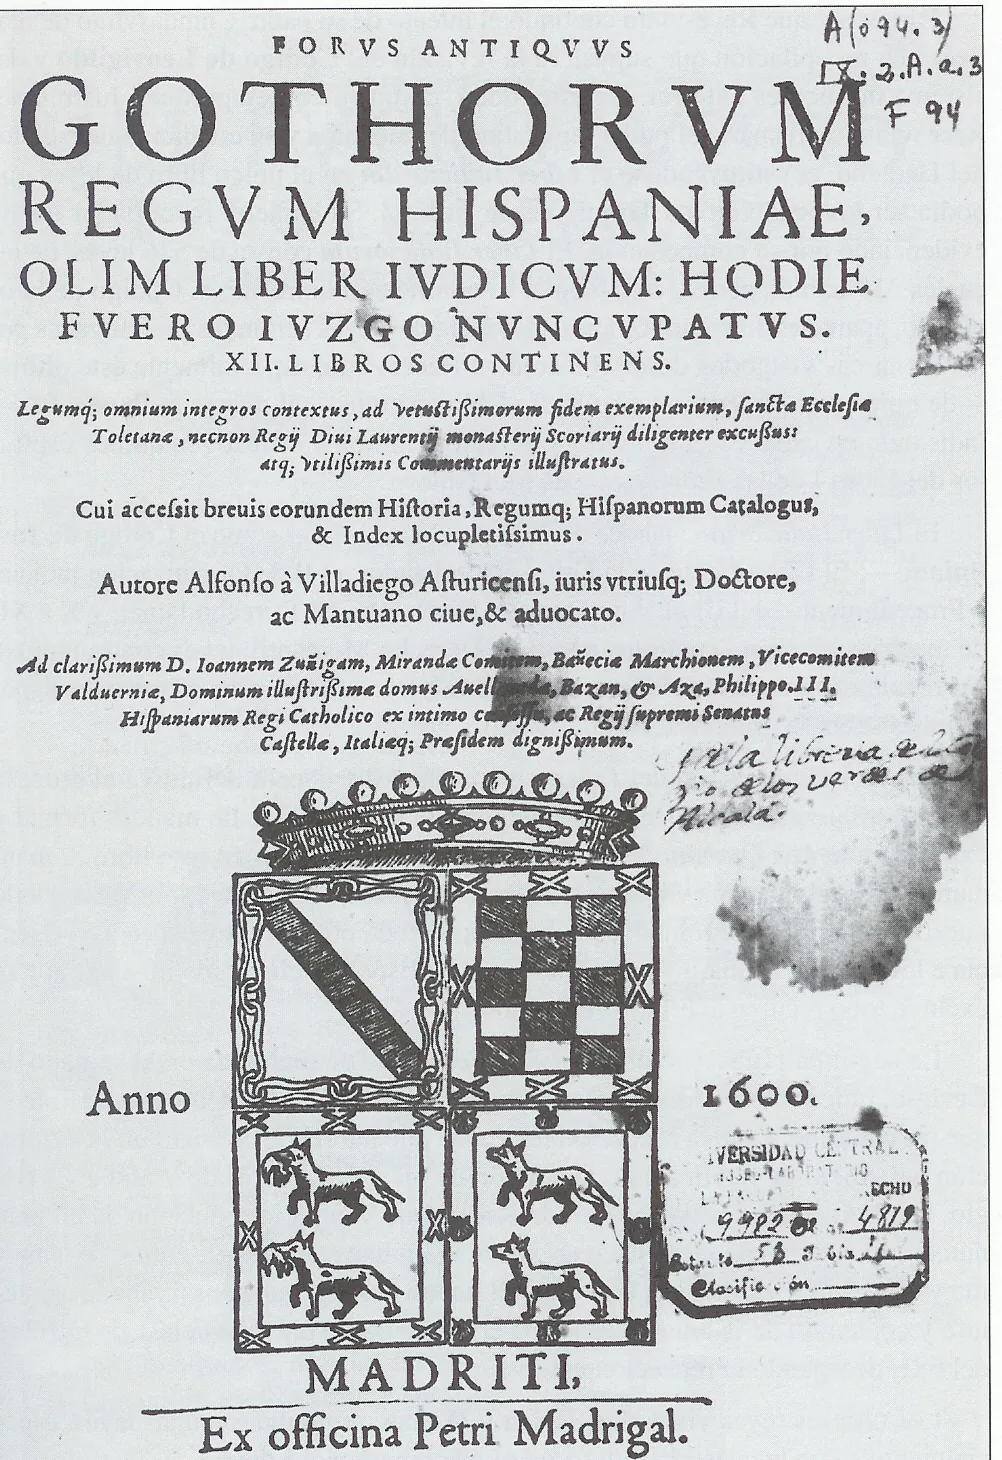 FORVS ANTIQVVS
GOTHORVM
REGVM HISPANIAE,
OLIM LIBER IVDICVM: HODIE
FVERO IVZGO NVNCVPATVS.
XII. LIBROS CONTINENS.
Legumq́; omnium integros contextus, ad vetustißimorum fidem exemplarium, sanctæ Ecclesiæ
Toletanæ, necnon Regij Diui Laurentij monasterij Scoriarij diligenter excußus:
atq; vtilißimis Commentarijs illustratus.
Cui accessit breuis eorundem Historia, Regumq; Hispanorum Catalogus,
& Index locupletissimus.
Autore Alfonso à Villadiego Asturicensi, iuris vtriusq; Doctore,
ac Mantuano ciue, & aduocato.
Ad clarißimum D. Ioannem Zuñigam, Mirandæ Comitem, Bañeciæ Marchionem, Vicecomitem
Valduerniæ, Dominum illustrißimæ domus Auellaneda, Bazan, & Aza, Philippo.III.
Hispaniarum Regi Catholico ex intimo consilijs, ac Regij supremi Senatus
Castellæ, Italiæq; Præsidem dignißimum.
A(094.3)
IX.2.A.a.3
F 94
de la libreria
de los verdes de
Alcala.
Anno 1600.
DERECHO
9982 4819
Clasificación
MADRITI,
Ex officina Petri Madrigal.